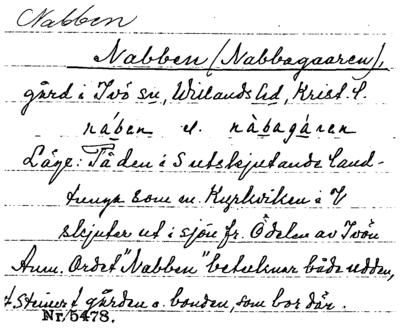 Nabben
Nabben (Nabbagaaren),
gård i Ivö sn, Willands hd, Krist. l.
náben el. nàbagáren
Läge: På den i S utskjutande land-
tunga som m. Kyrkviken i V
skjuter ut i sjön fr. Ödelen av Ivön
Anm. Ordet "Nabben" betecknar både udden,
gården o. bonden, som bor där.
Nr. 5478.